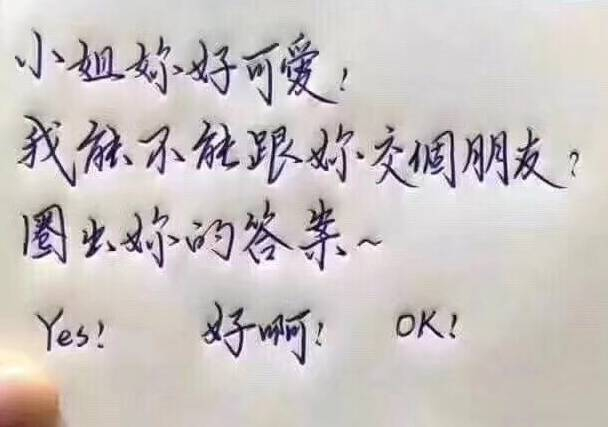 小姐妳好可愛！
我能不能跟妳交個朋友？
圈出妳的答案~
Yes! 好啊! OK!